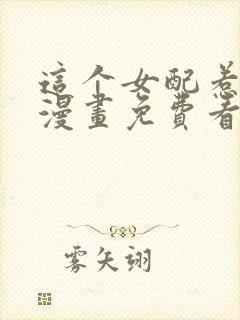 這个女配惹
漫畫免費看
雾矢翊